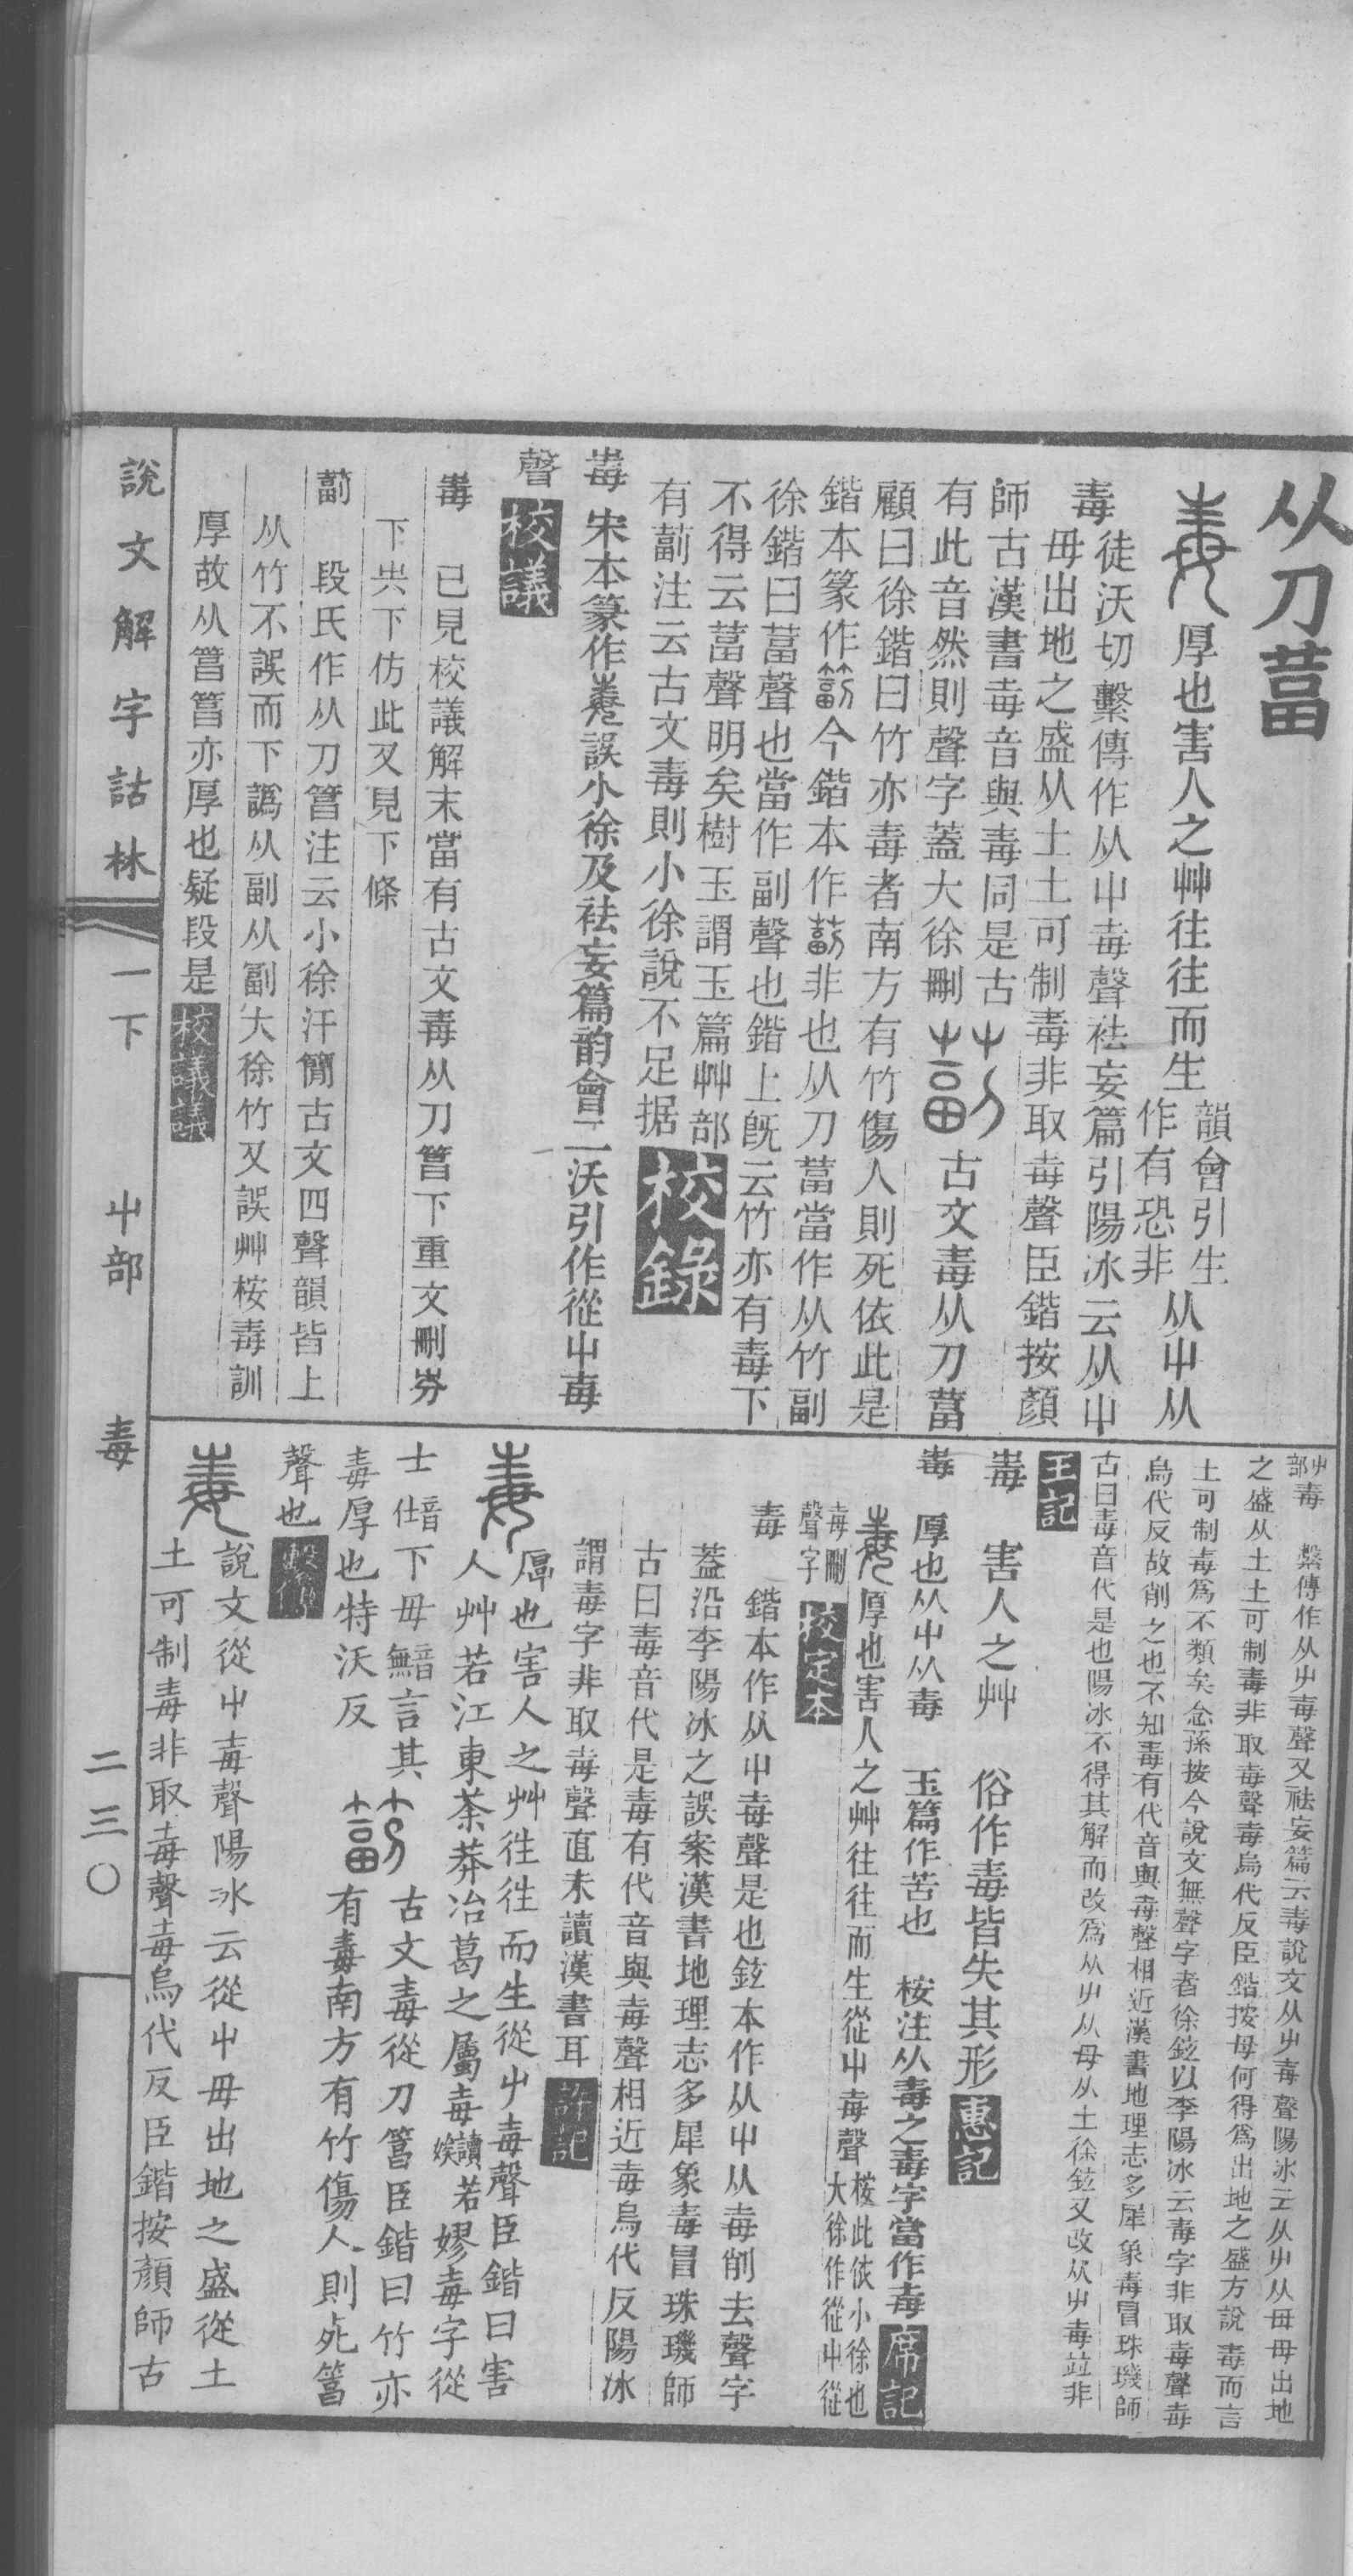 从刀葍
厚也害人之艸往往而生韻會引生作有恐非从屮从
毒徒沃切繫傳作从屮毐聲袪妄篇引陽冰云从屮
毋出地之盛从土土可制毒非取毐聲臣鍇按顏
師古漢書毐音與毒同是古
有此音然則聲字蓋大徐刪
古文毒从刀葍
顧曰徐鍇曰竹亦毒者南方有竹傷人則死依此是
鍇本篆作今鍇本作非也从刀葍當作从竹副
徐鍇曰葍聲也當作副聲也鍇上旣云竹亦有毒下
不得云葍聲明矣樹玉謂玉篇艸部
有萴注云古文毒則小徐說不足据校錄
毒 宋本篆作誤小徐及袪妄篇韵會二沃引作從屮毐
聲校議
毒 已見校議解末當有古文毒从刀䈞下重文刪岁
下㞢下仿此又見下條
段氏作从刀䈞注云小徐汗簡古文四聲韻皆上
从竹不誤而下譌从副从㽬大徐竹又誤艸桉毒訓
厚故从䈞䈞亦厚也疑段是校議議
說文解字詁林 一下 屮部 毒 二三〇
屮部毒 繫傳作从屮毐聲又袪妄篇云毒說文从屮毐聲陽冰云从屮从毋毋出地
之盛从土土可制毒非取毐聲毐烏代反臣鍇按母何得爲出地之盛方說毒而言
土可制毒爲不類矣念孫按今說文無聲字者徐鉉以李陽冰云毒字非取毐聲毐
烏代反故削之也不知毒有代音與毐聲相近漢書地理志多犀象毒冒珠璣師
古曰毒音代是也陽冰不得其解而改爲从屮从母从土徐鉉又改从屮毐竝非
王記
毒 害人之艸 俗作毒皆失其形惠記
毒 厚也从屮从毒 玉篇作苦也 桉注从毒之毒字當作毐席記
厚也害人之艸往往而生從屮毐聲桉此依小徐也大徐作從屮從
毐刪聲字校定本
毒 鍇本作从屮毐聲是也鉉本作从屮从毐削去聲字
葢沿李陽冰之誤案漢書地理志多犀象毒冒珠璣師
古曰毒音代是毒有代音與毐聲相近毐烏代反陽冰
謂毒字非取毐聲直未讀漢書耳許記
厚也害人之艸往往而生從屮毐聲臣鍇曰害
人艸若江東荼莽冶葛之屬毐讀若嫪毐字從
士下毋言其
毒厚也特沃反
古文毒從刀䈞臣鍇曰竹亦
有毒南方有竹傷人則死䈞
聲也繫傳
說文從屮毐聲陽冰云從屮毋出地之盛從土
土可制毒非取毐聲毐烏代反臣鍇按顏師古